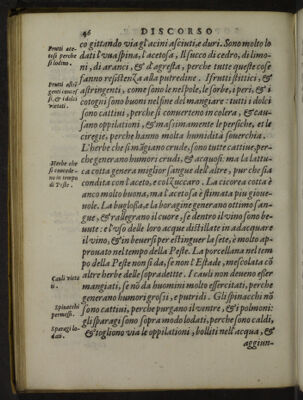 46 DISCORSO
co gittando via gl'acini asciuti, e duri. Sono molto lo
Frutti ace-
tosi perche
si lodino.
dati l'uua spina, l'acetosa, Il succo di cedro, di limo-
ni, di aranci, & d'agresta, perche tutte queste cose
fanno resistenza alla putredine. I frutti stitici, &
Frutti astri
genti concessi
astringenti, come sono le nespole, le sorbe, i peri, & i
cotogni sono buoni nel fine del mangiare: tutti i dolci
uietati.
sono cattiui, perche si conuertono in colera, & cau-
sano oppilationi, & massimamente le persiche, et le
ciregie, perche hanno molta humidità souerchia.
L'herbe che si mãgiano crude, sono tutte cattiue, per-
Herbe che
si concede-
no in tempo
di Peste.
che generano humori crudi, & acquosi: ma la lattu-
ca cotta genera miglior sangue dell'altre, pur che sia
condita con l'aceto, e col Zuccaro. La cicorea cotta è
anco molto buona, ma l'acetosa è stimata piu gioue-
uole. La buglossa, e la boragine generano ottimo san-
gue, & rallegrano il cuore, se dentro il vino sono be-
uute: e l'vso delle loro acque distillate in adacquare
il vino, & in beuersi per estinguer la sete, è molto ap-
prouato nel tempo della Peste. La porcellana nel tem
po della Peste non si dà, se non l'Estade, mescolata cõ
altre herbe delle sopradette. I cauli non deueno esser
Cauli vieta
ti.
mangiati, se nõ da huomini molto essercitati, perche
generano humori grossi, e putridi. Gli spinacchi nõ
Spinacchi
permessi.
sono cattiui, perche purgano il ventre, & i polmoni:
gli sparagi sono sopra modo lodati, perche sono caldi,
Sparagi lo-
dati.
& togliono via le oppilationi, bolliti nell'acqua, &
aggiun-